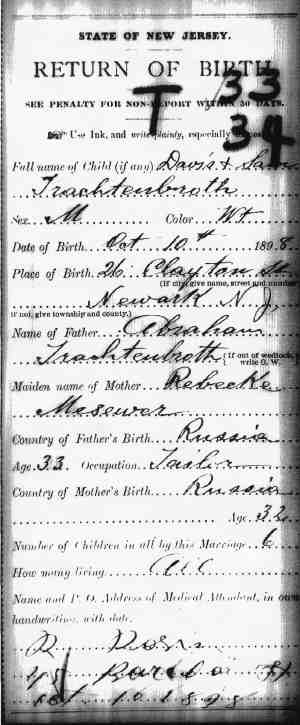 STATE OF NEW JERSEY.
RETURN OF BIRTH
T 33
34
SEE PENALTY FOR NON-REPORT WITHIN 30 DAYS.
Use Ink, and write plainty, especially
Full name of Child (if any) Davis & Sam
Trachtenbroth
Sex M Color Wt
Date of Birth Oct 10th 1898
Place of Birth 26 Clayton St
(If city, give name, street and number
Newark N J
if not, give township and county.)
Name of Father Abraham
Trachtenbroth (If out of wedlock, write O. W.
Maiden name of Mother Rebecke
Mesewer
Country of Father's Birth Russia
Age 33 Occupation Tailor
Country of Mother's Birth Russia
Age 32
Number of Children in all by this Marriage 6
How many living All
Name and P. O. Address of Medical Attendent, in own
handwriting, with date.